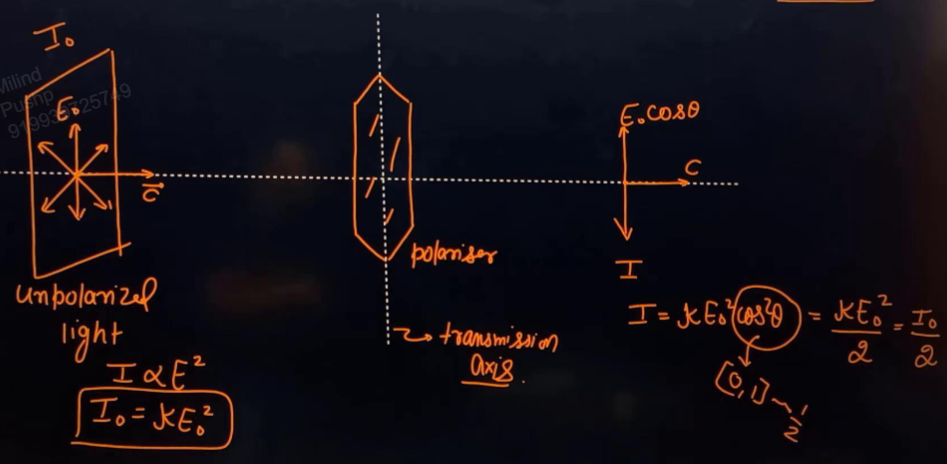 I₀
Milind
Pushp
E₀
c⃗
unpolarized
light
I ∝ E²
I₀ = KE₀²
polariser
→ transmission
axis.
E₀cosθ
C
I
I = KE₀² cos²θ = KE₀²/2 = I₀/2
[0,1] ~ 1/2